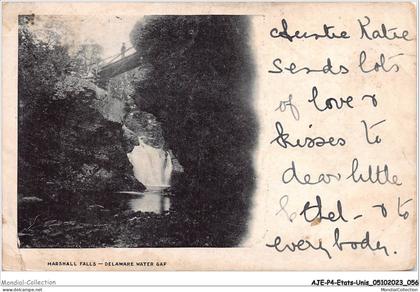 Auntie Katie
Sends lots
of love &
kisses to
dear little
Ethel - & to
everybody.
MARSHALL FALLS — DELAWARE WATER GAP
Mondial-Collection
AJE-P4-Etats-Unis_05102023_056